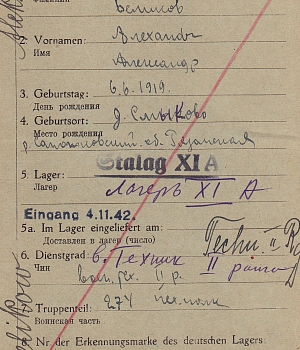 Фамилия
Великов
2. Vornamen: Александр
Имя
Александр
3. Geburtstag: 6.6.1919.
День рождения
4. Geburtsort: д. Смыково
Место рождения
р. Сапожковский. об. Рязанская
Stalag XI A
5. Lager:
Лагерь Лагерь XI A
Eingang 4.11.42.
5a. Im Lager eingeliefert am:
Доставлен в лагерь (число)
6. Dienstgrad в. Техник II
Чин
II ранга
274
7. Truppenteil:
Воинская часть
Nr der Erkennungsmarke des deutschen Lagers: